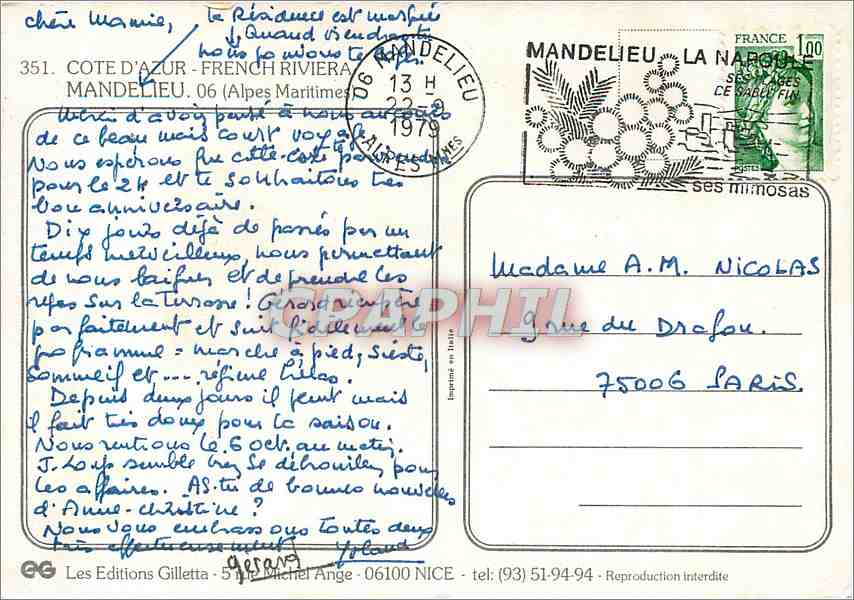 Chère Mamie,
la Résidence est marquée
Quand viendras-tu
nous
351. COTE D'AZUR - FRENCH RIVIERA
MANDELIEU. 06 (Alpes Maritimes)
Merci d'avoir pensé à nous au cours
de ce beau mais court voyage.
Nous espérons que cette carte
pour le 24 et te souhaitons très
bon anniversaire.
Dix jours déjà de passés par un
temps merveilleux, nous permettant
de nous baigner et de prendre les
repas sur la terrasse! Gérard récupère
parfaitement et suit fidèlement le
programme = marche à pied, sieste,
sommeil et --- régime
Depuis deux jours il pleut mais
il fait très doux pour la saison.
Nous rentrons le 6 oct. au matin.
J. Loup semble bien se débrouiller pour
les affaires. AS-tu de bonnes nouvelles
d'Anne-christine ?
Nous vous embrassons toutes deux
très affectueusement
gerard
Yoland
06 MANDELIEU
13 H
22-9
1979
ALPES MMES
MANDELIEU LA NAPOULE
SES PLAGES
DE SABLE FIN
ses mimosas
FRANCE 1,00
POSTES
Madame A.M. NICOLAS
9 rue du Dragon.
75006 PARIS
Imprimé en Italie
GRAPHIL
EG Les Editions Gilletta - 5 rue Michel Ange - 06100 NICE - tel: (93) 51-94-94 - Reproduction interdite